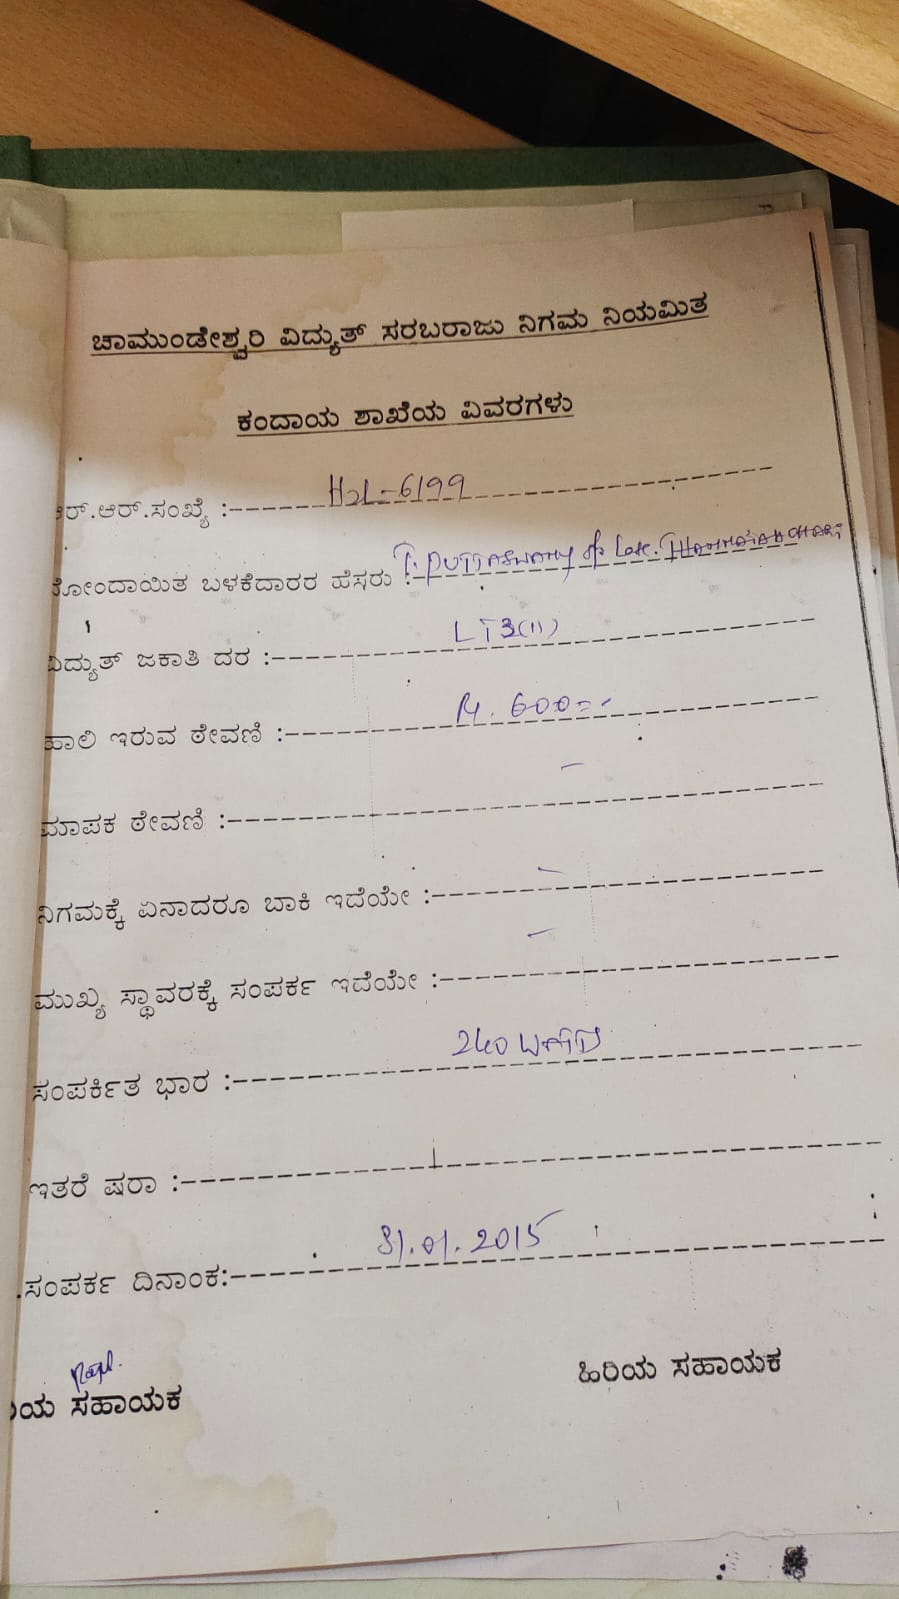 ಚಾಮುಂಡೇಶ್ವರಿ ವಿದ್ಯುತ್ ಸರಬರಾಜು ನಿಗಮ ನಿಯಮಿತ
ಕಂದಾಯ ಶಾಖೆಯ ವಿವರಗಳು
ಆರ್.ಆರ್.ಸಂಖ್ಯೆ :- H2L-6199
ನೋಂದಾಯಿತ ಬಳಕೆದಾರರ ಹೆಸರು :- T. PUTTASWAMY
ವಿದ್ಯುತ್ ಜಕಾತಿ ದರ :- LT3(11)
ಹಾಲಿ ಇರುವ ಠೇವಣಿ :- 600=-
ಮಾಪಕ ಠೇವಣಿ :- –
ನಿಗಮಕ್ಕೆ ಏನಾದರೂ ಬಾಕಿ ಇದೆಯೇ :- –
ಮುಖ್ಯ ಸ್ಥಾವರಕ್ಕೆ ಸಂಪರ್ಕ ಇದೆಯೇ :- –
ಸಂಪರ್ಕಿತ ಭಾರ :- 240
ಇತರೆ ಷರಾ :-
ಸಂಪರ್ಕ ದಿನಾಂಕ:- 31.01.2015
ರಿಯ ಸಹಾಯಕ ಹಿರಿಯ ಸಹಾಯಕ